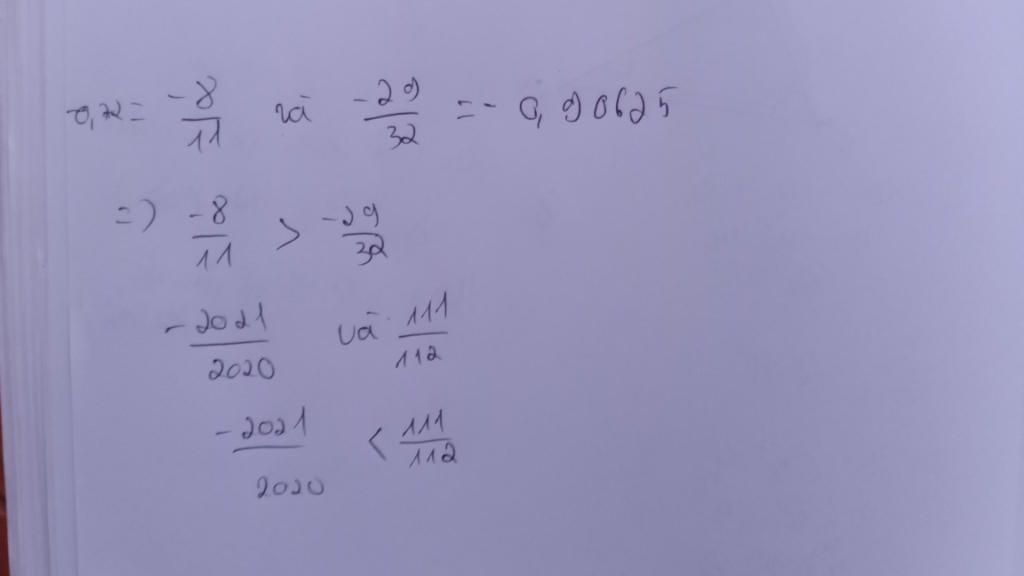 = -8/11 và -29/32 = - 0,90625
=) -8/11 > -29/32
-2021/2020 và 111/112
-2021/2020 < 111/112